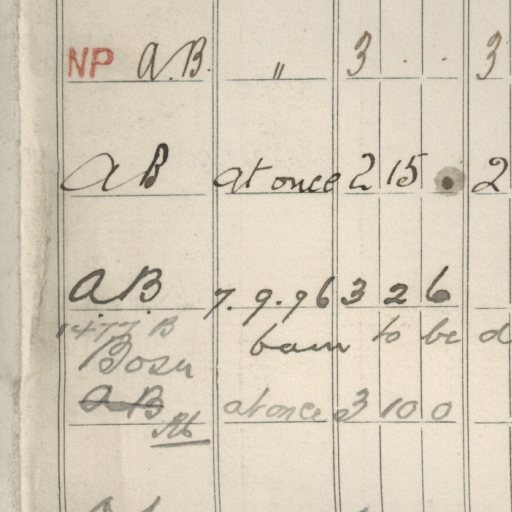 NP A.B. " 3 . . 3
AB at once 2 15 . 2
A.B. 7.9.96 3 2 6
1477 B
Bosn bam to be d
AB at once 3 10 0